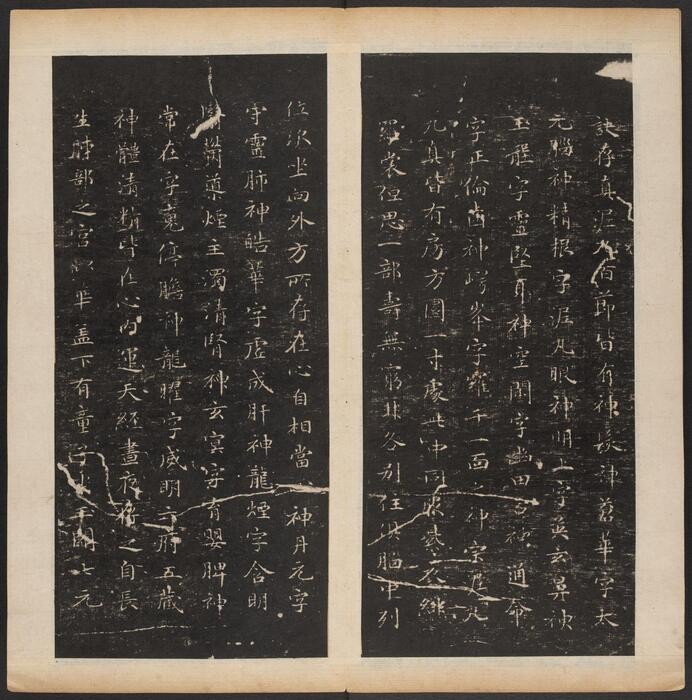 訣存真泥丸百節皆有神髮神蒼華字太
元腦神精根字泥丸眼神明上字英玄鼻神
玉壟字靈堅耳神空閑字幽田舌神通命
字正倫齒神崿峯字羅千一面之神宗泥丸
九真皆有房方圓一寸處此中同服紫衣飛
羅裳但思一部壽無窮非各別住俱腦中列
位次坐向外方所存在心自相當心神丹元字
守靈肺神皓華字虛成肝神龍煙字含明
翳鬱導煙主濁清腎神玄冥字育嬰脾神
常在字魂停膽神龍曜字威明六府五藏
神體清精皆在心內運天經晝夜存之自長
生肺部之宮似華蓋下有童子坐玉闕七元